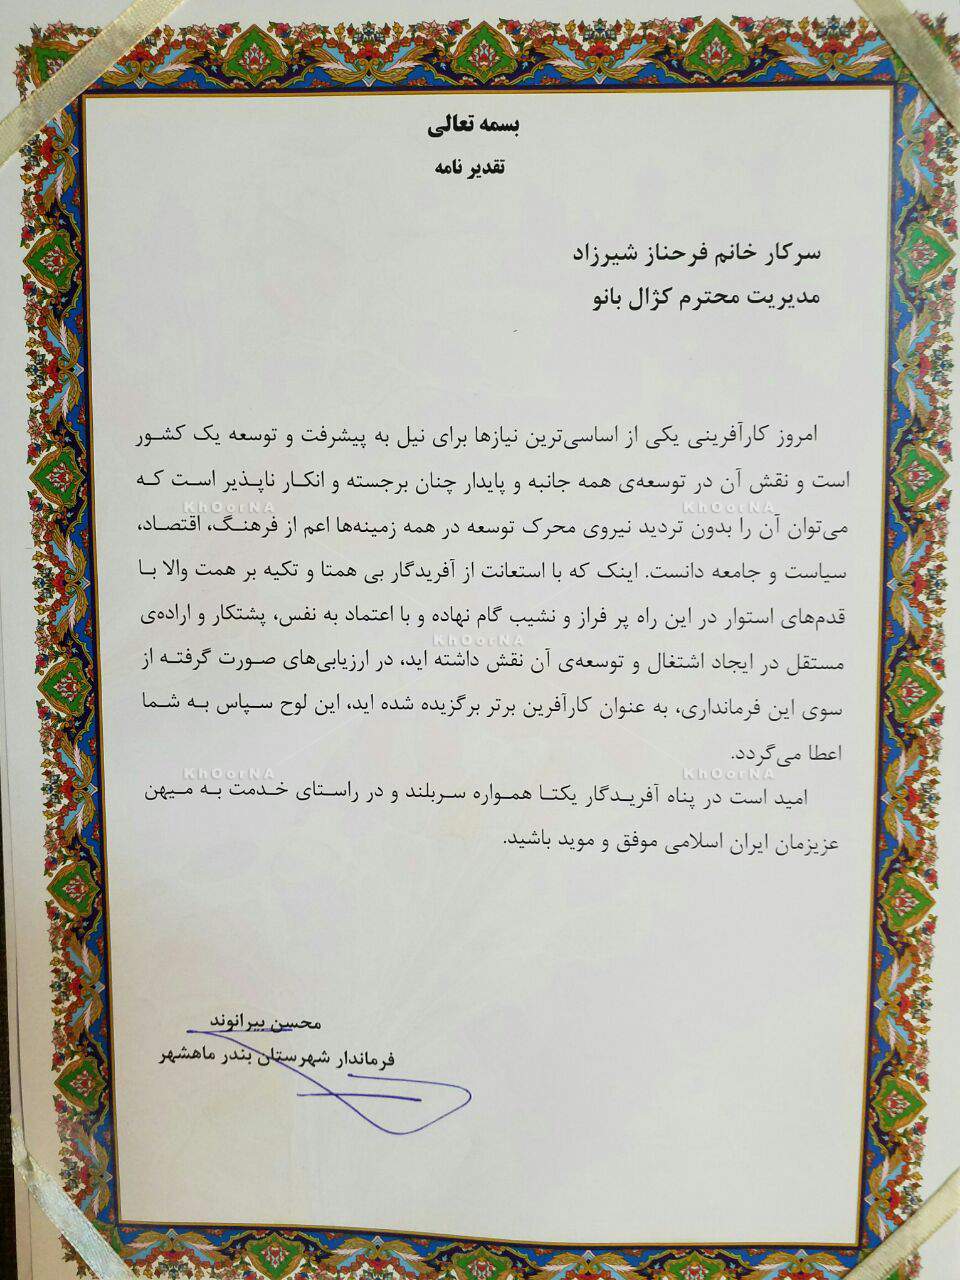 بسمه تعالی
تقدیر نامه
سرکار خانم فرحناز شیرزاد
مدیریت محترم کژال بانو
امروز کارآفرینی یکی از اساسی‌ترین نیازها برای نیل به پیشرفت و توسعه یک کشور
است و نقش آن در توسعه‌ی همه جانبه و پایدار چنان برجسته و انکار ناپذیر است که
می‌توان آن را بدون تردید نیروی محرک توسعه در همه زمینه‌ها اعم از فرهنگ، اقتصاد،
سیاست و جامعه دانست. اینک که با استعانت از آفریدگار بی همتا و تکیه بر همت والا با
قدم‌های استوار در این راه پر فراز و نشیب گام نهاده و با اعتماد به نفس، پشتکار و اراده‌ی
مستقل در ایجاد اشتغال و توسعه‌ی آن نقش داشته اید، در ارزیابی‌های صورت گرفته از
سوی این فرمانداری، به عنوان کارآفرین برتر برگزیده شده اید، این لوح سپاس به شما
اعطا می‌گردد.
امید است در پناه آفریدگار یکتا همواره سربلند و در راستای خدمت به میهن
عزیزمان ایران اسلامی موفق و موید باشید.
محسن بیرانوند
فرماندار شهرستان بندر ماهشهر
KhOorNA
KhOorNA
KhOorNA
KhOorNA
KhOorNA